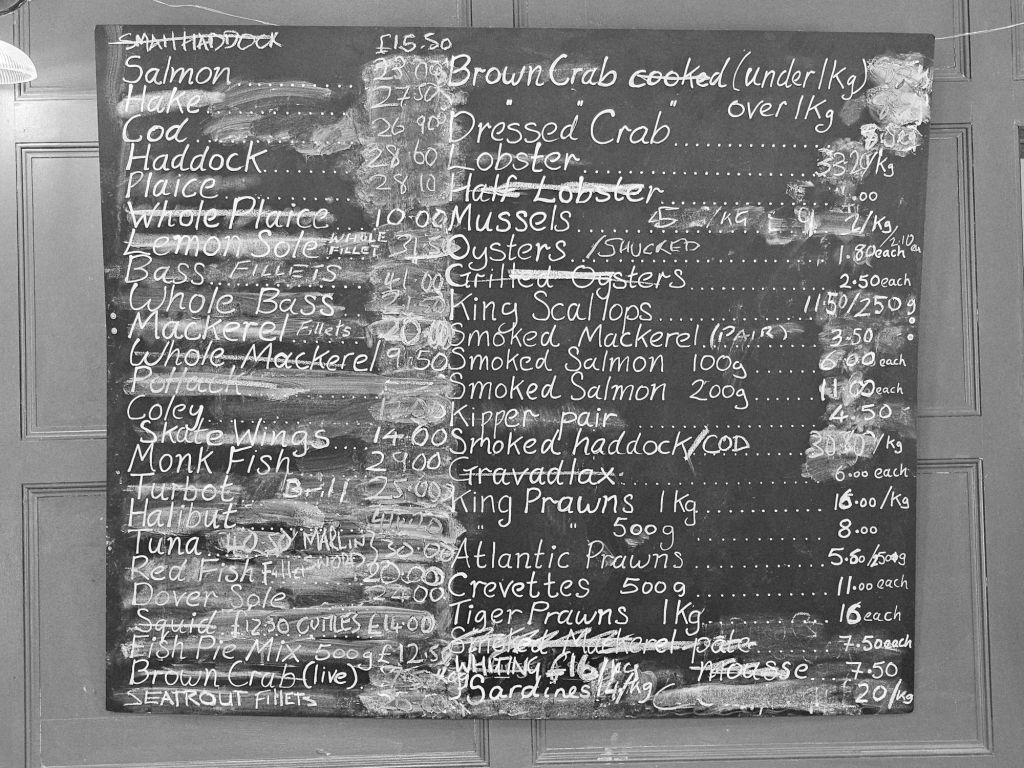 SMALL HADDOCK £15.50
Salmon
Hake 27.50
Cod 26.90
Haddock 28.60
Plaice 28.10
Whole Plaice 10.00
Lemon Sole WHOLE FILLET
Bass FILLETS 41.00
Whole Bass
Mackerel Fillets 20.0
Whole Mackerel 9.50
Pollack
Coley
Skate Wings 14.00
Monk Fish 29.00
Turbot Brill 25.00
Halibut
Tuna 40.50 MARLIN £30.00
Red Fish Fillet 20.00
Dover Sole 24.00
Squid £12.30 CUTTLES £14.00
Fish Pie Mix 500g £12.5
Brown Crab (live)
SEATROUT FILLETS
Brown Crab cooked (under 1Kg)
" " " over 1Kg
Dressed Crab
Lobster /Kg
Half Lobster .00
Mussels /Kg
Oysters /SHUCKED 1.80each /2.10ea
Grilled Oysters 2.50each
King Scallops 11.50/250g
Smoked Mackerel (PAIR) 3.50
Smoked Salmon 100g 6.00each
Smoked Salmon 200g 11.00each
Kipper pair 4.50
Smoked haddock/COD /Kg
Gravadlax 6.00 each
King Prawns 1Kg 16.00/Kg
" " 500g 8.00
Atlantic Prawns
Crevettes 500g 11.00 each
Tiger Prawns 1Kg 16 each
Smoked Mackerel pate 7.50each
WHITING £16/KG mousse 7.50
Sardines 14/Kg 20/Kg